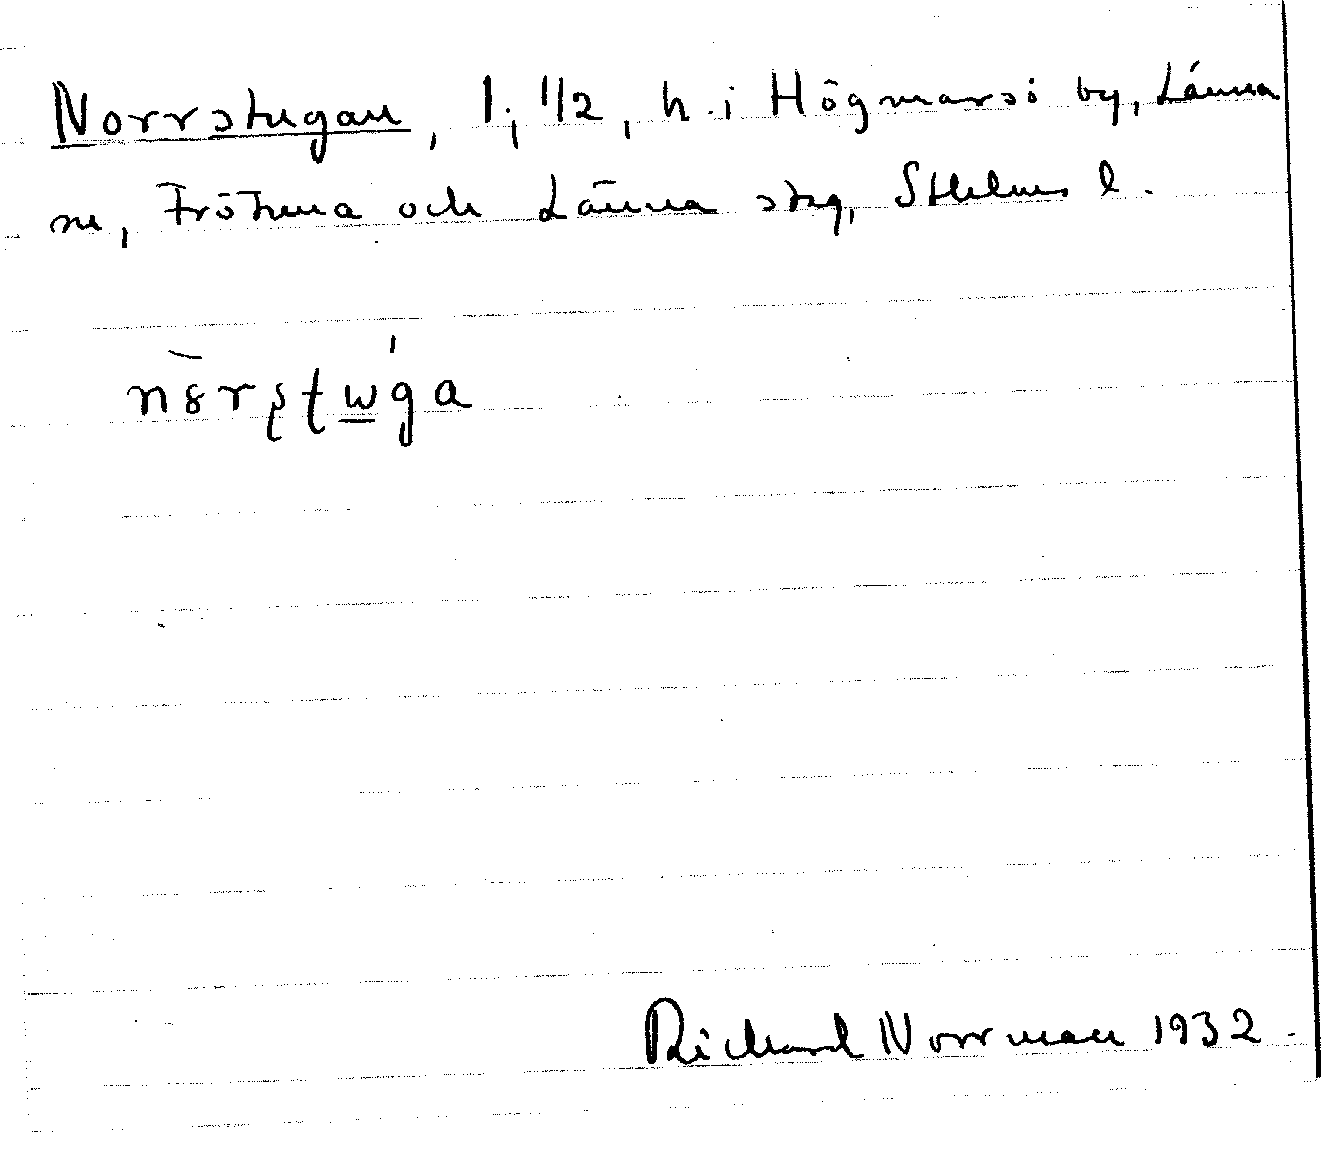 Norrstugan, 1; 1/2, h. i Högmarsö by, Länna
sn, Frötuna och Länna skg, Sthlms l.
nȣ̀rʂʈwga
Richard Norrman 1932.